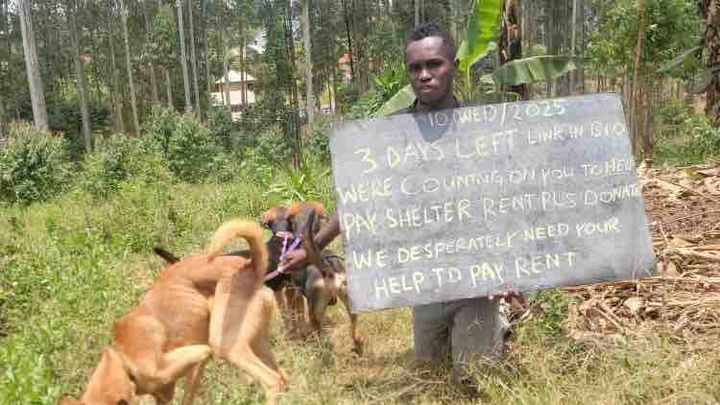 10 WED/2025
3 DAYS LEFT LINK IN BIO
WE'RE COUNTING ON YOU TO HELP
PAY SHELTER RENT PLS DONATE
WE DESPERATELY NEED YOUR
HELP TO PAY RENT